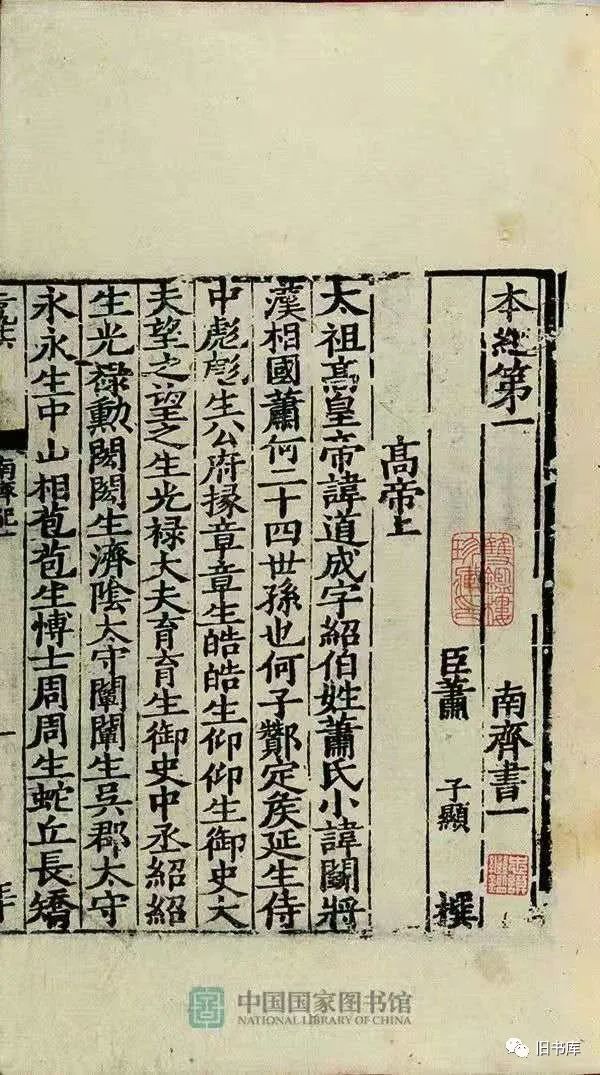 本紀第一 南齊書一
臣蕭 子顯 撰
髙帝上
太祖髙皇帝諱道成字紹伯姓蕭氏小諱鬭將
漢相國蕭何二十四世孫也何子酇定矦延生侍
中彪彪生公府掾章章生皓皓生仰仰生御史大
夫望之望之生光禄大夫育育生御史中丞紹紹
生光禄勲閎閎生濟陰太守闡闡生吳郡太守
永永生中山相苞苞生愽士周周生蛇丘長矯
雙鑑樓
珍藏印
中国国家图书馆
NATIONAL LIBRARY OF CHINA
旧书库